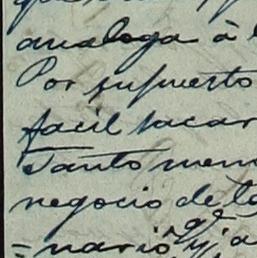 analoga à
Por supuesto
facil sacar
Tanto men
negocio de
= nario